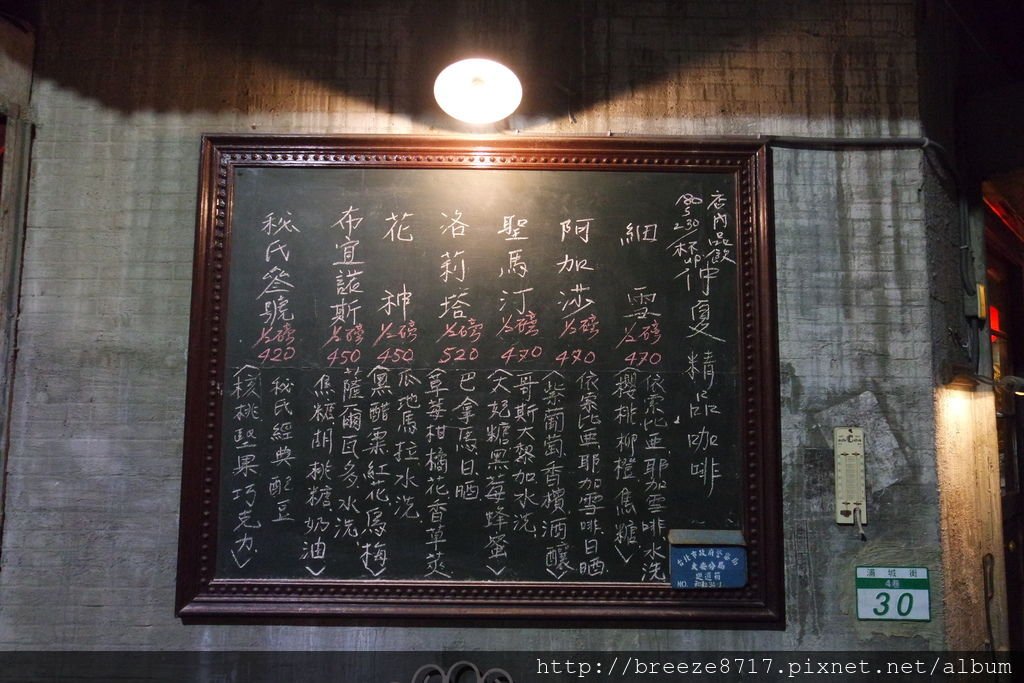 店內品飲
80元 230/杯
仲夏精品咖啡
細雪
1/2磅
470
依索比亞耶加雪啡水洗
(櫻桃柳橙焦糖)
阿加莎
1/2磅
470
依索比亞耶加雪啡日曬
(紫葡萄香檳酒釀)
聖馬汀
1/2磅
470
哥斯大黎加水洗
(太妃糖黑莓蜂蜜)
洛莉塔
1/2磅
520
巴拿馬日曬
(草莓柑橘花香草莢)
花神
1/2磅
450
瓜地馬拉水洗
(黑醋栗紅花烏梅)
布宜諾斯
1/2磅
450
薩爾瓦多水洗
(焦糖胡桃糖奶油)
秘氏參號
1/2磅
420
秘氏經典配豆
(核桃堅果巧克力)
台北市政府警察局
大安分局
巡邏箱
NO.
滿城街
4巷
30
http://breeze8717.pixnet.net/album